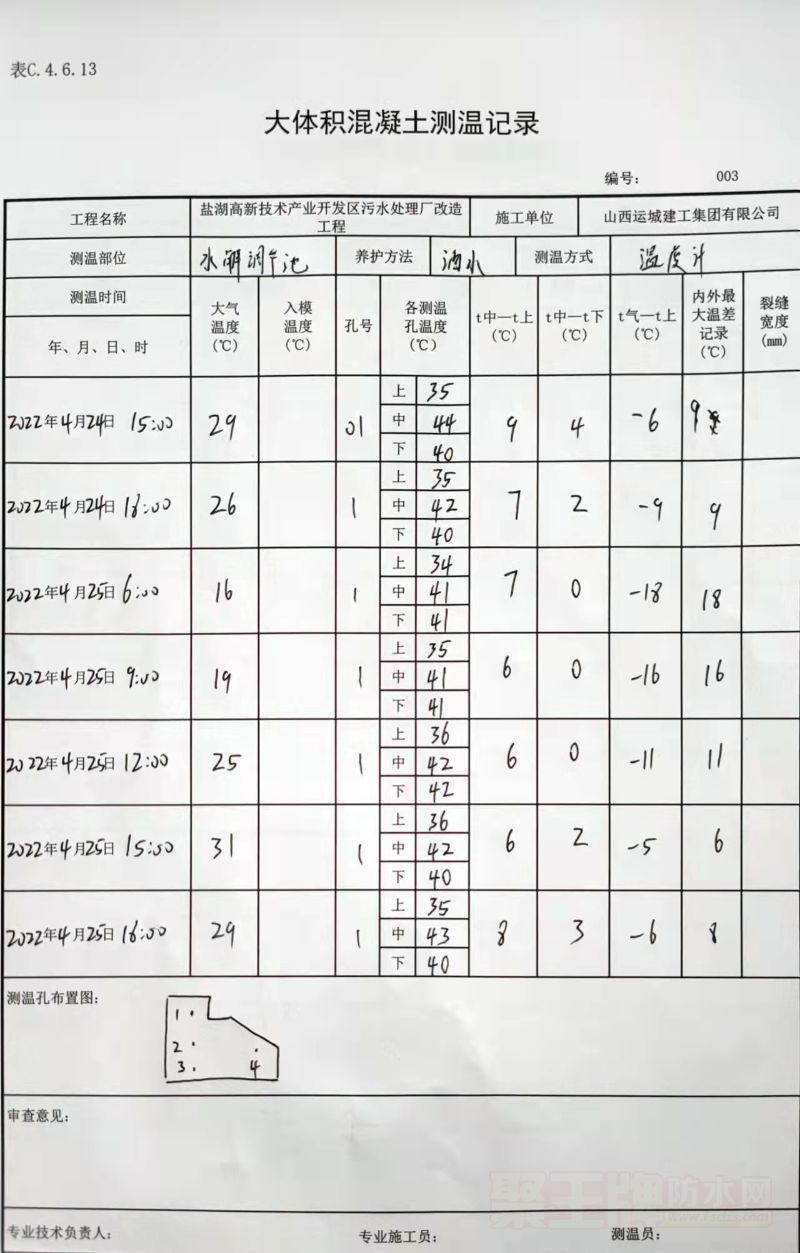 表C.4.6.13
大体积混凝土测温记录
编号： 003
工程名称 盐湖高新技术产业开发区污水处理厂改造工程 施工单位 山西运城建工集团有限公司
测温部位 水解调节池 养护方法 洒水 测温方式 温度计
测温时间
年、月、日、时 大气温度(℃) 入模温度(℃) 孔号 各测温孔温度(℃) t中—t上(℃) t中—t下(℃) t气—t上(℃) 内外最大温差记录(℃) 裂缝宽度(mm)
上 35
2022年4月24日 15:00 29 01 中 44 9 4 -6 9
下 40
上 35
2022年4月24日 18:00 26 1 中 42 7 2 -9 9
下 40
上 34
2022年4月25日 6:00 16 1 中 41 7 0 -18 18
下 41
上 35
2022年4月25日 9:00 19 1 中 41 6 0 -16 16
下 41
上 36
2022年4月25日 12:00 25 1 中 42 6 0 -11 11
下 42
上 36
2022年4月25日 15:00 31 1 中 42 6 2 -5 6
下 40
上 35
2022年4月25日 18:00 29 1 中 43 8 3 -6 8
下 40
测温孔布置图：
1
2
3 4
审查意见：
聚王牌防水网
专业技术负责人： 专业施工员： 测温员：